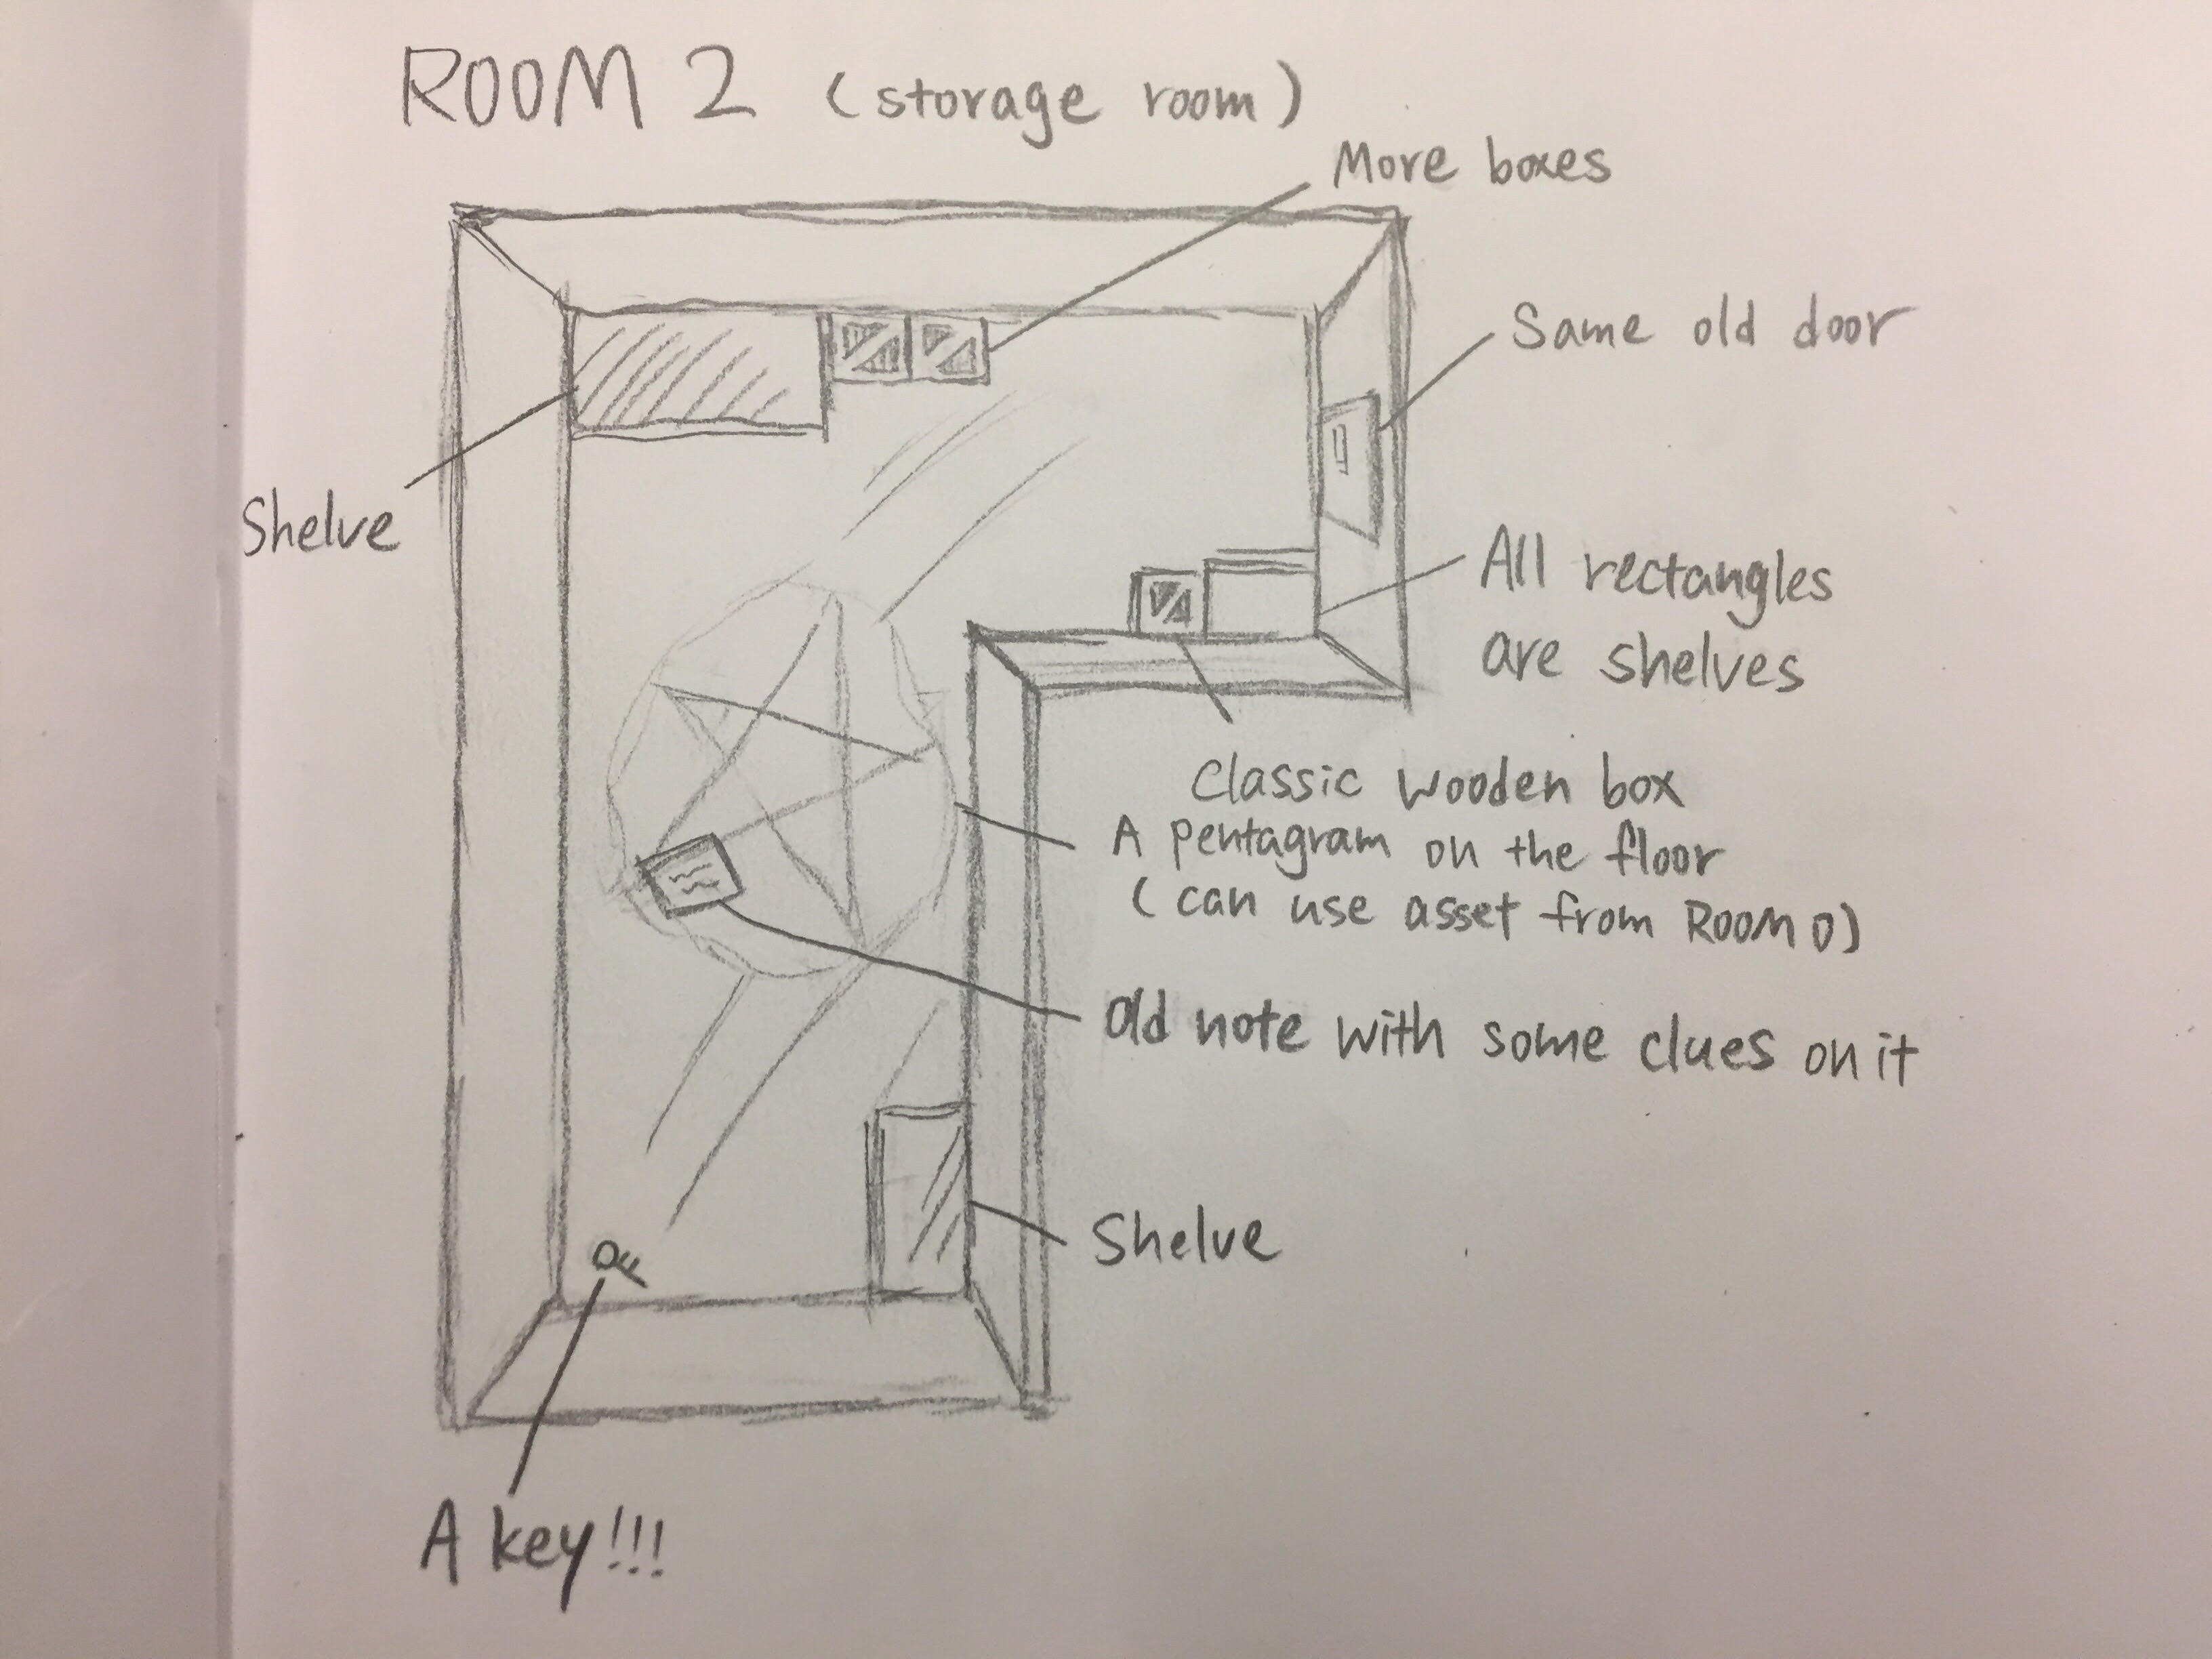 ROOM 2 (storage room)
More boxes
Same old door
Shelve
All rectangles
are shelves
Classic wooden box
A pentagram on the floor
(can use asset from ROOM 0)
Old note with some clues on it
Shelve
A key!!!